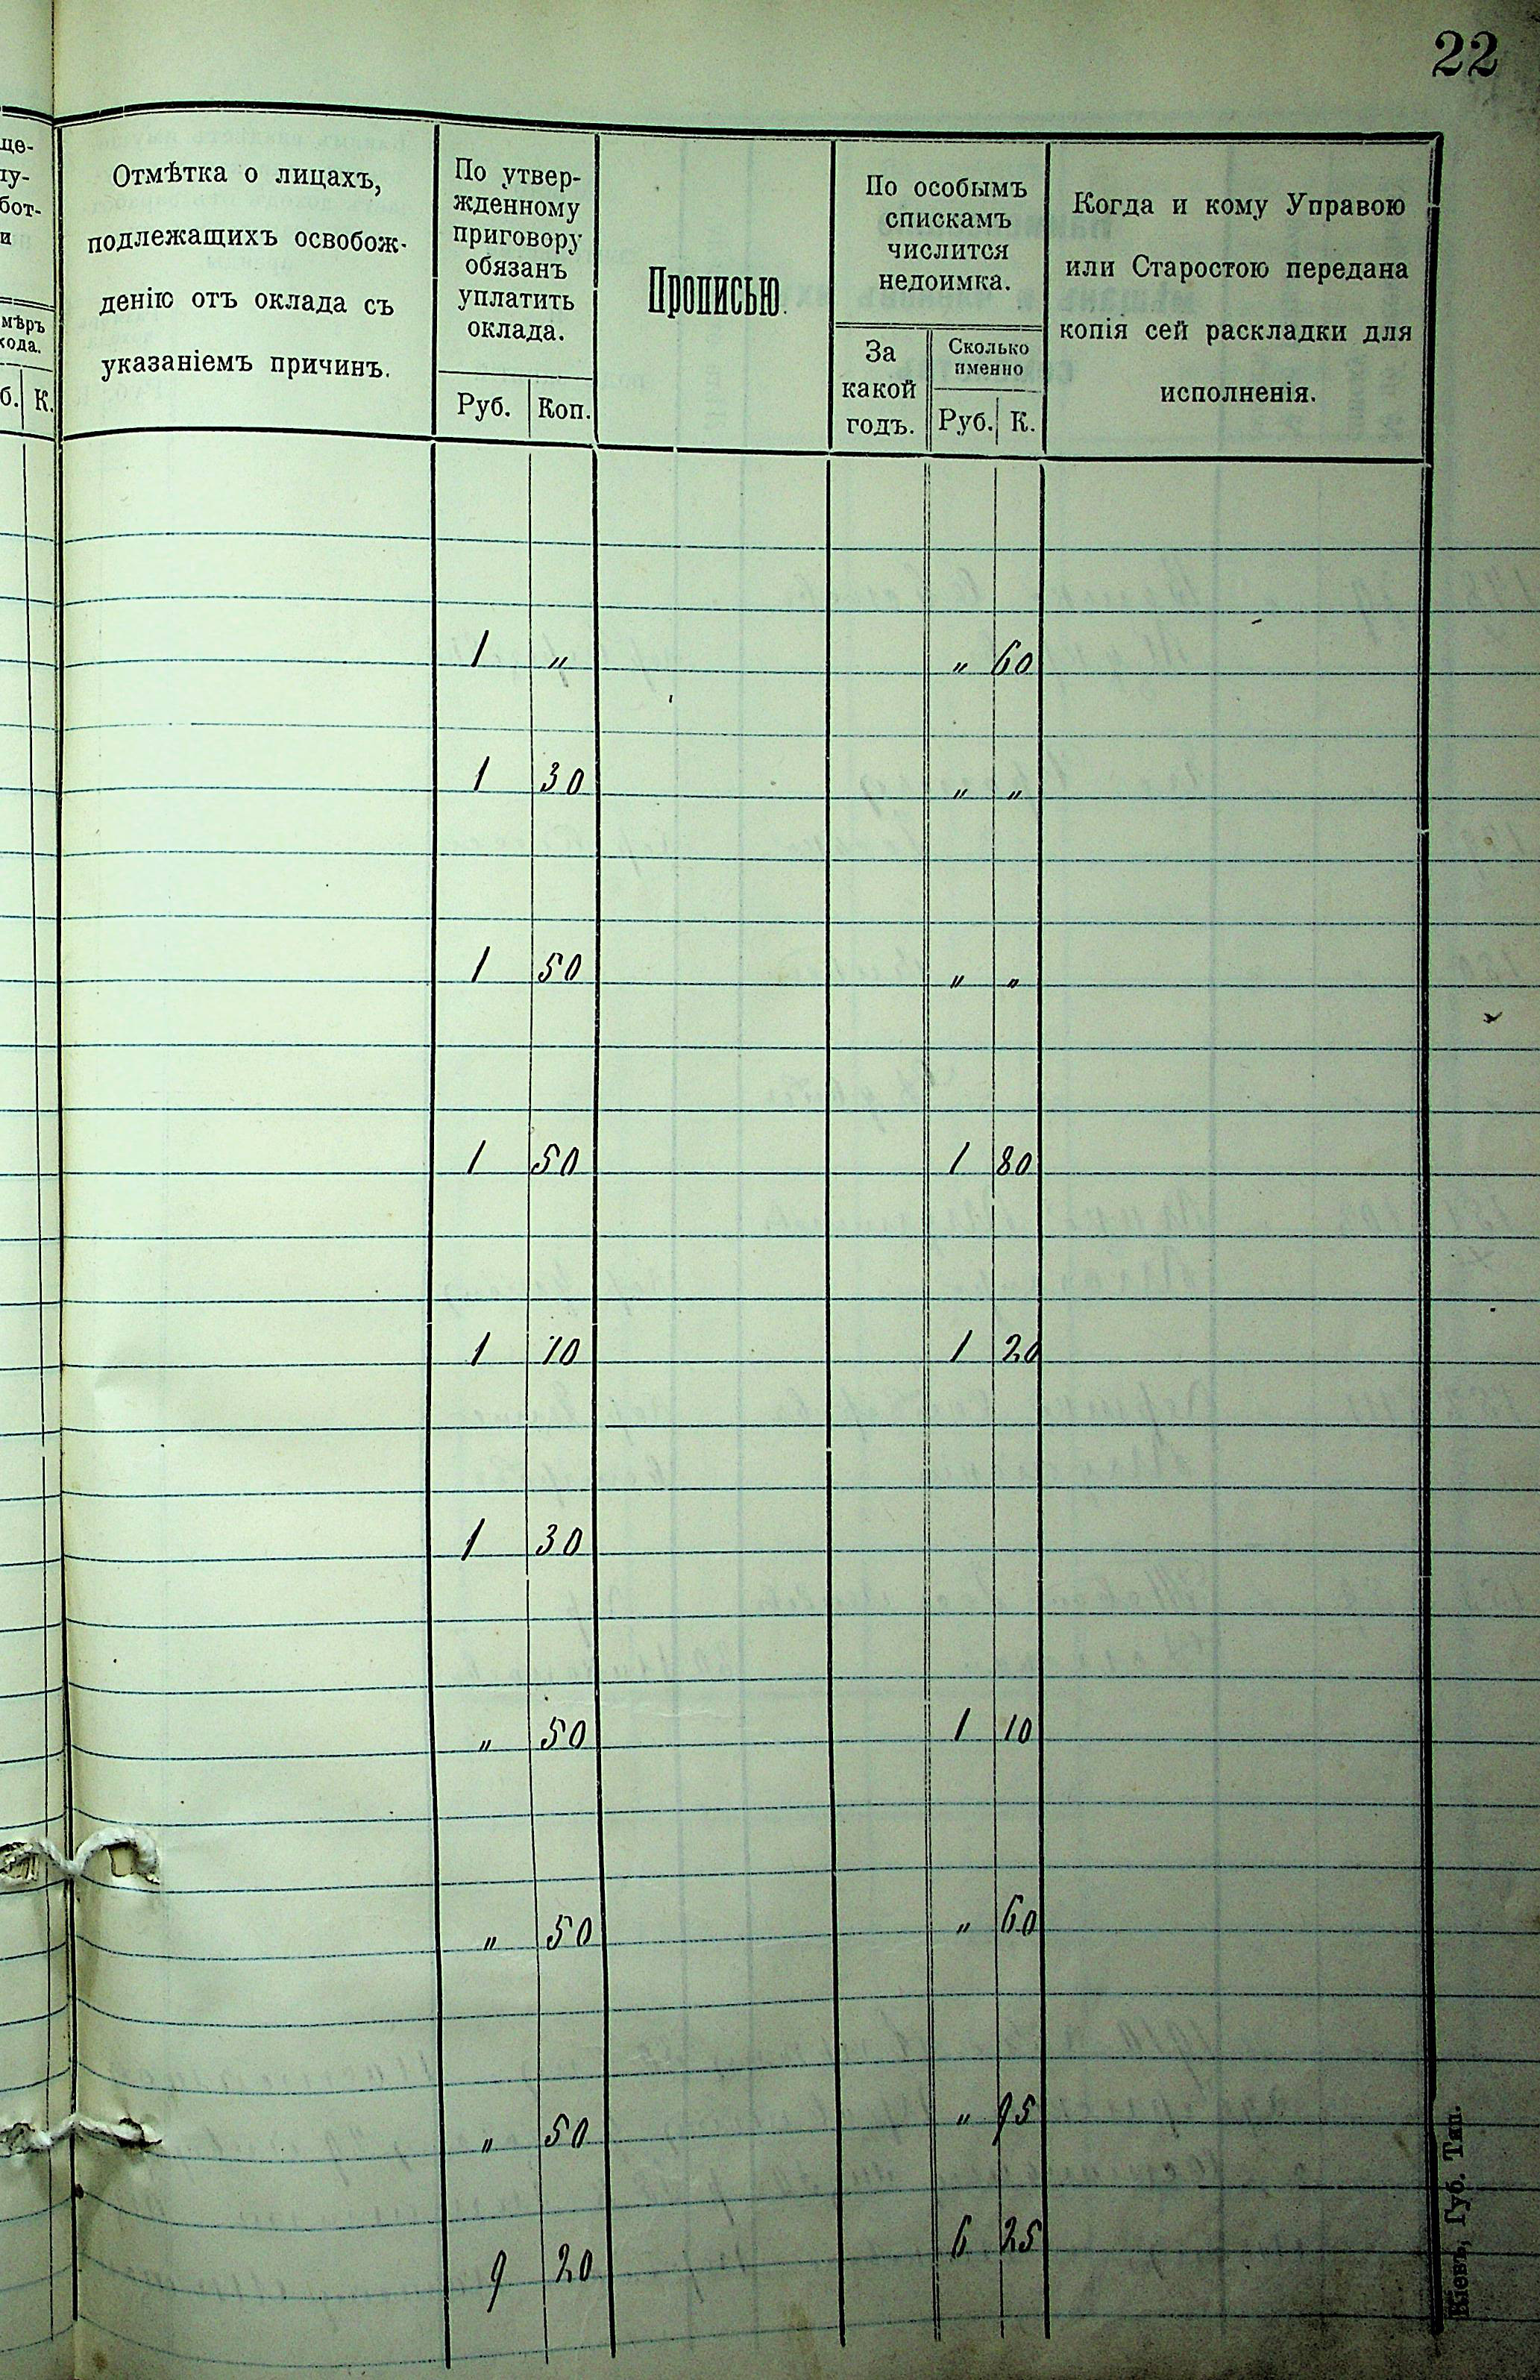 22
це-
лу-
бот-
и
мѣръ
хода.
б. К.
Отмѣтка о лицахъ,
подлежащихъ освобож-
денію отъ оклада съ
указаніемъ причинъ.
По утвер-
жденному
приговору
обязанъ
уплатить
оклада.
Руб. Коп.
Прописью.
По особымъ
спискамъ
числится
недоимка.
За
какой
годъ.
Сколько
именно
Руб. К.
Когда и кому Управою
или Старостою передана
копія сей раскладки для
исполненія.
1 " " 60
1 30 " "
1 50 " "
1 50 1 80
1 10 1 20
1 30
" 50 1 10
" 50 " 60
" 50 " 95
9 20 6 25
Кіевъ, Губ. Тип.